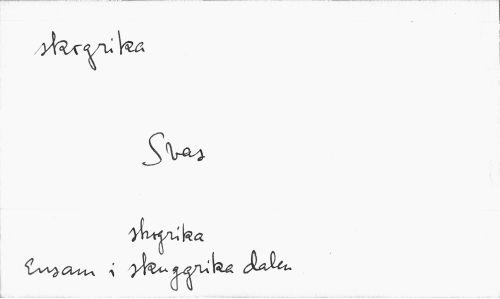 skogrika
Svas
skogrika
Ensam i skuggrika dalen